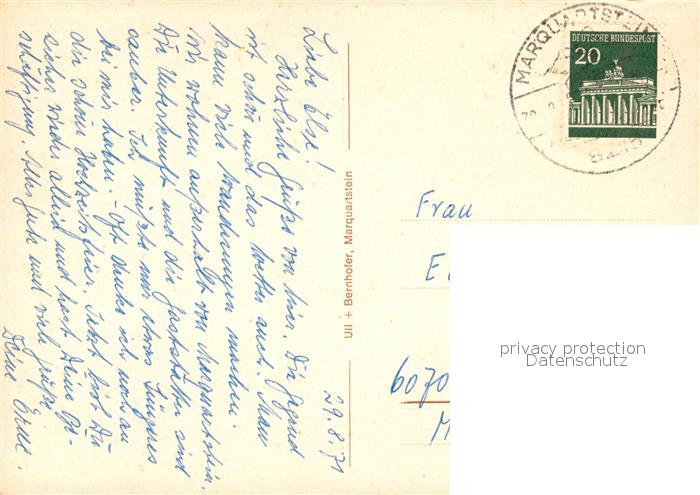 29.8.71
Liebe Else!
Herzliche Grüße von hier. Die Gegend
ist schön und das Wetter auch. Man
kann viele Wanderungen machen.
Wir wohnen außerhalb von Marquartstein.
Die Unterkunft und die Gaststätten sind
sauber. Ich müßte nur etwas Jüngeres
bei mir haben. Oft denke ich noch an
die schöne Hochzeitsfeier. Jetzt bist Du
sicher wieder allein und hast Deine Be-
schäftigung. Alles Gute und viele Grüße
Deine Erne.
Ull + Bernhofer, Marquartstein
MARQUARTSTEIN
DEUTSCHE BUNDESPOST
20
Frau
E
6070
M
privacy protection
Datenschutz